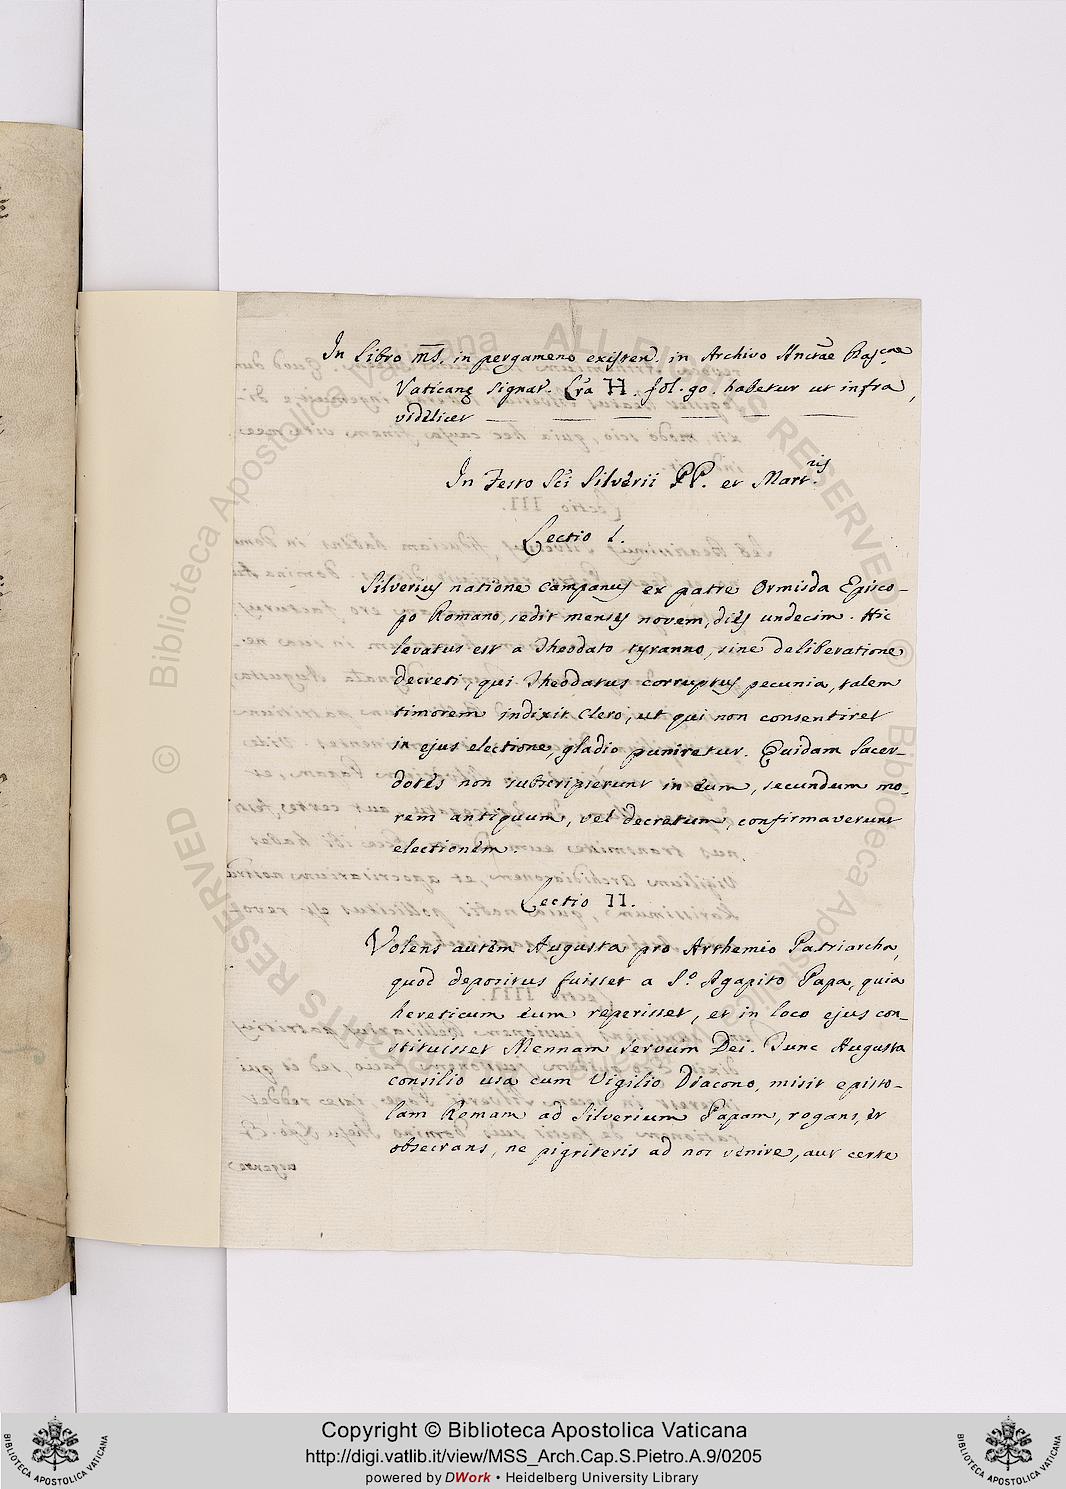 In Libro ms. in pergameno existen. in Archivo
Vaticanę signat. Lrâ H. fol. 90. habetur ut infra,
videlicet
In Festo Sci Silverii PP. et Mart.ris
Lectio I.
Silverius natione Campanus ex patre Ormisda Episco-
po Romano, sedit menses novem, dies undecim. Hic
levatus est a Theodato tyranno, sine deliberatione
decreti, qui Theodatus corruptus pecunia, talem
timorem indixit Clero, ut qui non consentiret
in ejus electione, gladio puniretur. Quidam Sacer-
dotes non subscripserunt in eum, secundum mo-
rem antiquum, vel decretum, confirmaverunt
electionem.
Lectio II.
Volens autem Augusta pro Anthemio Patriarcha,
quod depositus fuisset a S.º Agapito Papa, quia
hereticum eum reperisset, et in loco ejus con-
stituisset Mennam servum Dei. Tunc Augusta
consilio usa cum Vigilio Diacono, misit episto-
lam Romam ad Silverium Papam, rogans, et
obsecrans, ne pigriteris ad nos venire, aut certe
© Biblioteca Apostolica Vaticana ALL RIGHTS RESERVED
Copyright © Biblioteca Apostolica Vaticana
http://digi.vatlib.it/view/MSS_Arch.Cap.S.Pietro.A.9/0205
powered by DWork • Heidelberg University Library
BIBLIOTECA APOSTOLICA VATICANA
BIBLIOTECA APOSTOLICA VATICANA